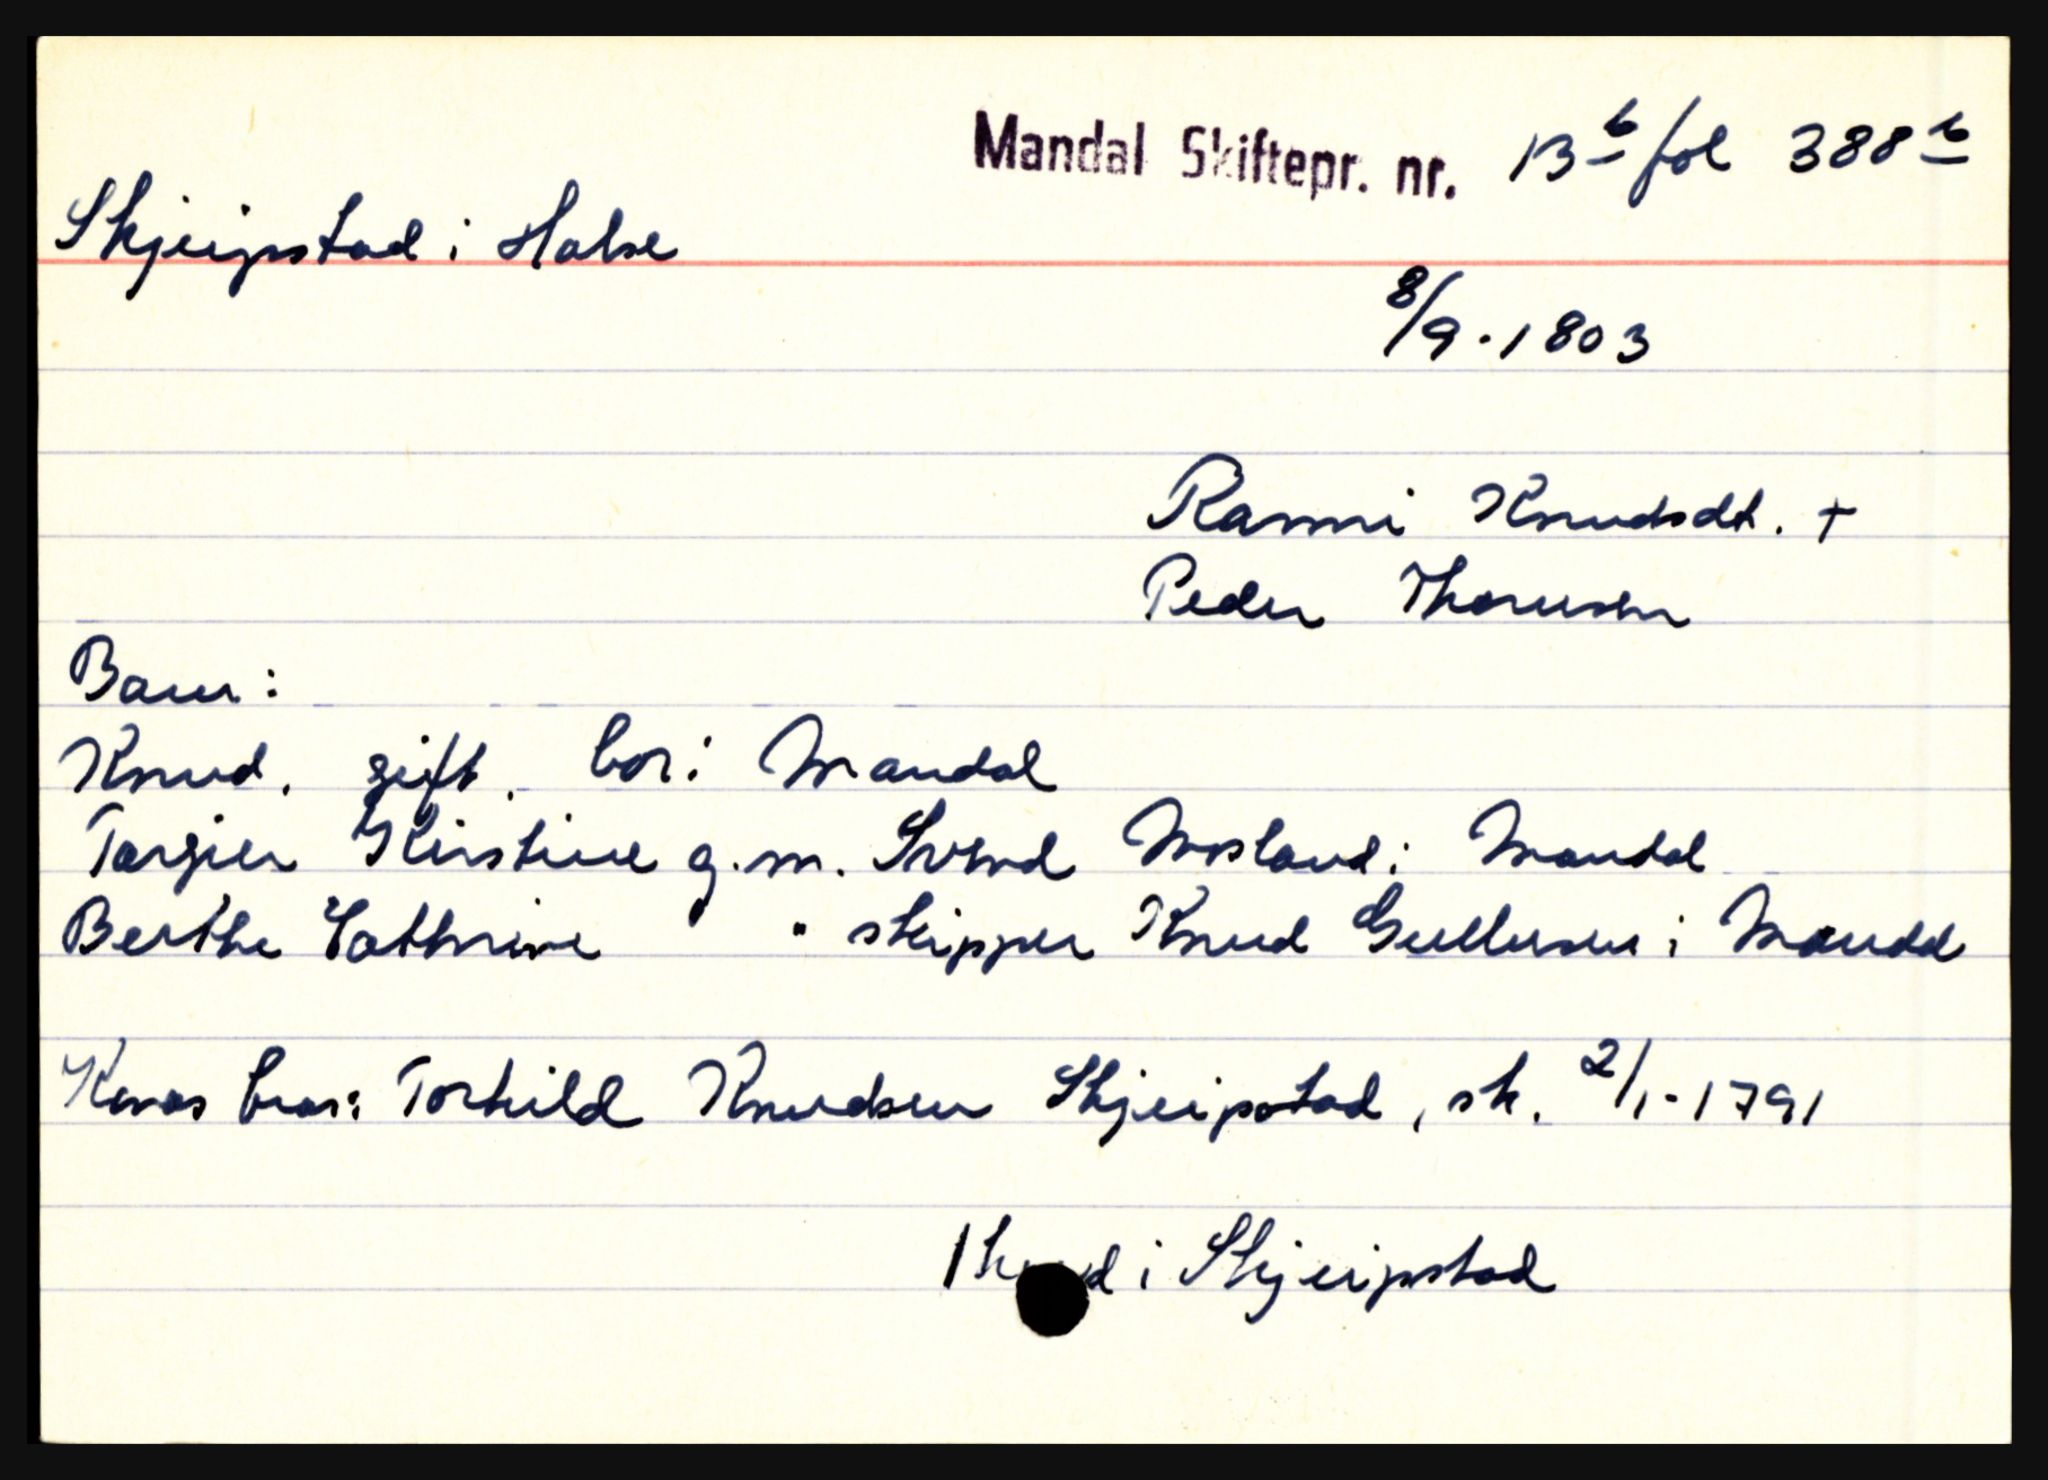 Mandal Skiftepr. nr. 13 b fol 388 b
Skjeipstad i Halse
8/9. 1803
Ranni Knudsdt. +
Peder Thoruesen
Barn:
Knud. gift. bor i Mandal
Torgier Kirstine g.m. Svend Mosland i Mandal
Berthe Cathrine " skipper Knud Gullersen i Mandal
Konas bror: Torkild Knudsen Skjeipstad, sk. 2/1-1791
1 hud i Skjeipstad